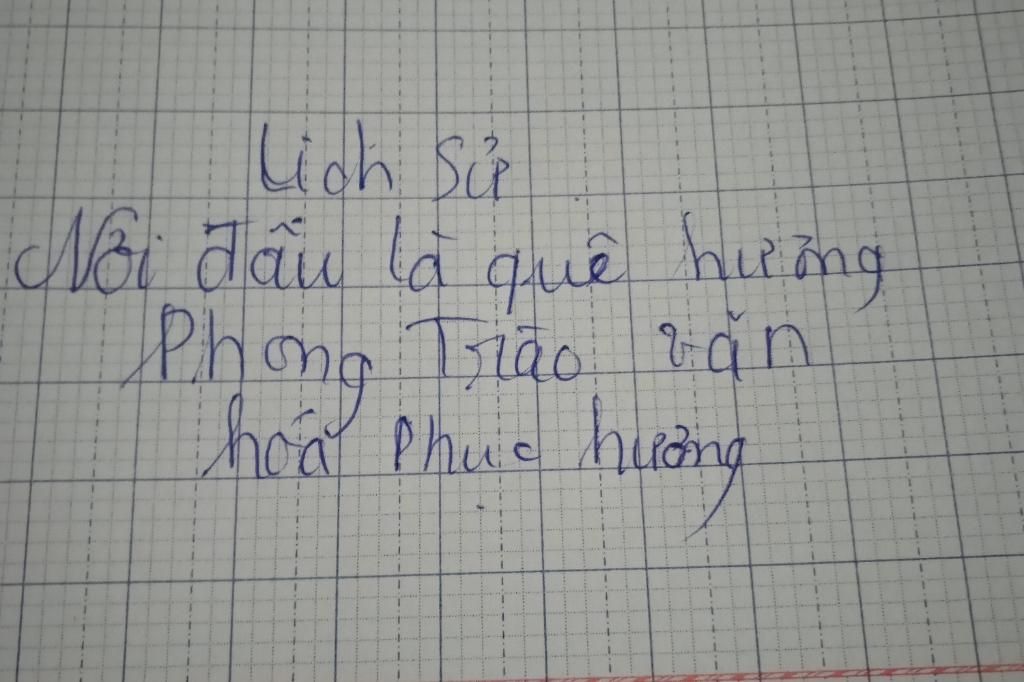 Lich Sử
Nơi đẫu là quê hương
Phong Trào văn
hoá Phuc hưởng